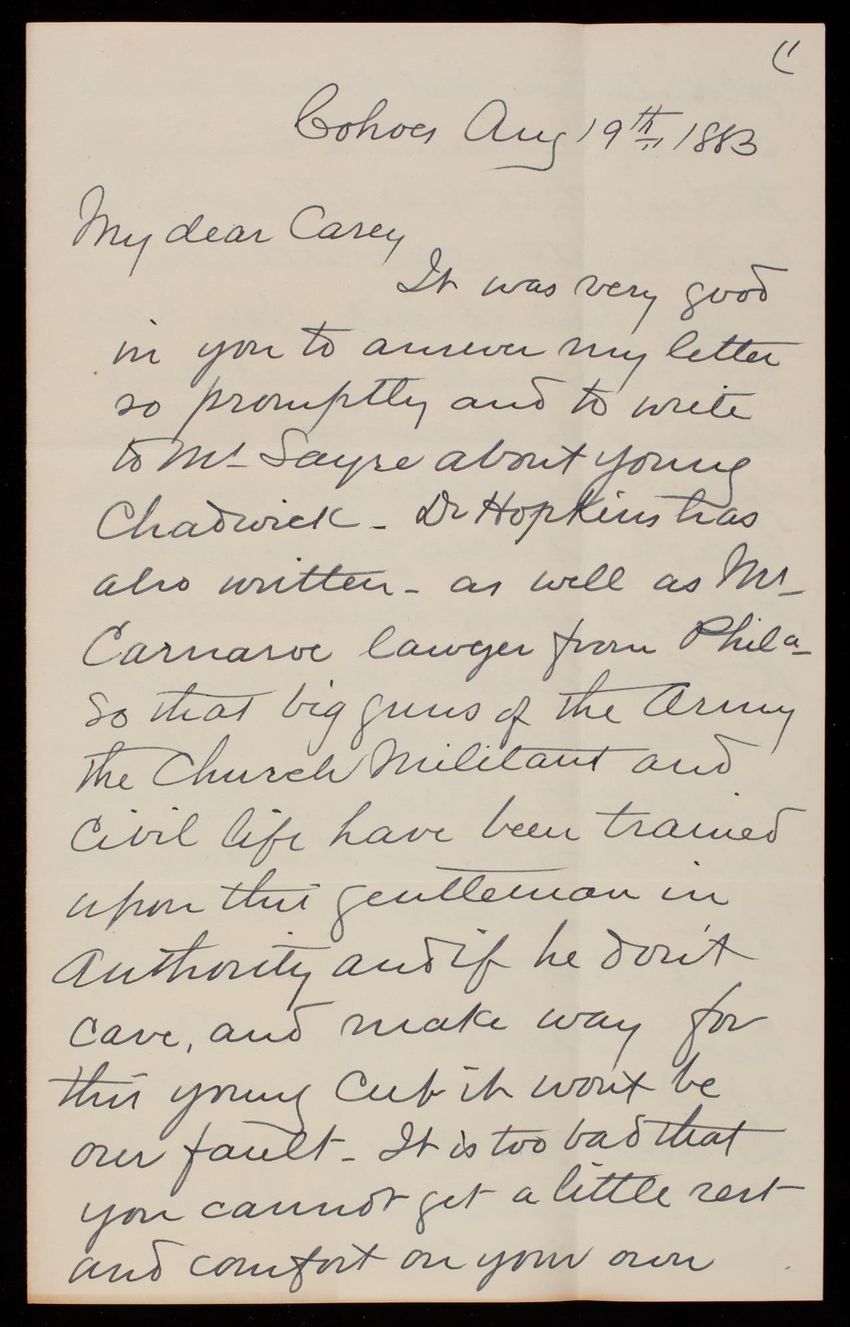 Cohoes Aug 19th, 1883
My dear Casey
It was very good
in you to answer my letter
so promptly and to write
to Mr Sayre about young
Chadwick - Dr Hopkins has
also written - as well as Mr -
lawyer from Phila -
So that big guns of the Army
the Church Militant and
Civil life have been trained
upon this gentleman in
Authority and if he don't
cave, and make way for
this young Cub it wont be
our fault - It is too bad that
you cannot get a little rest
and comfort on your own